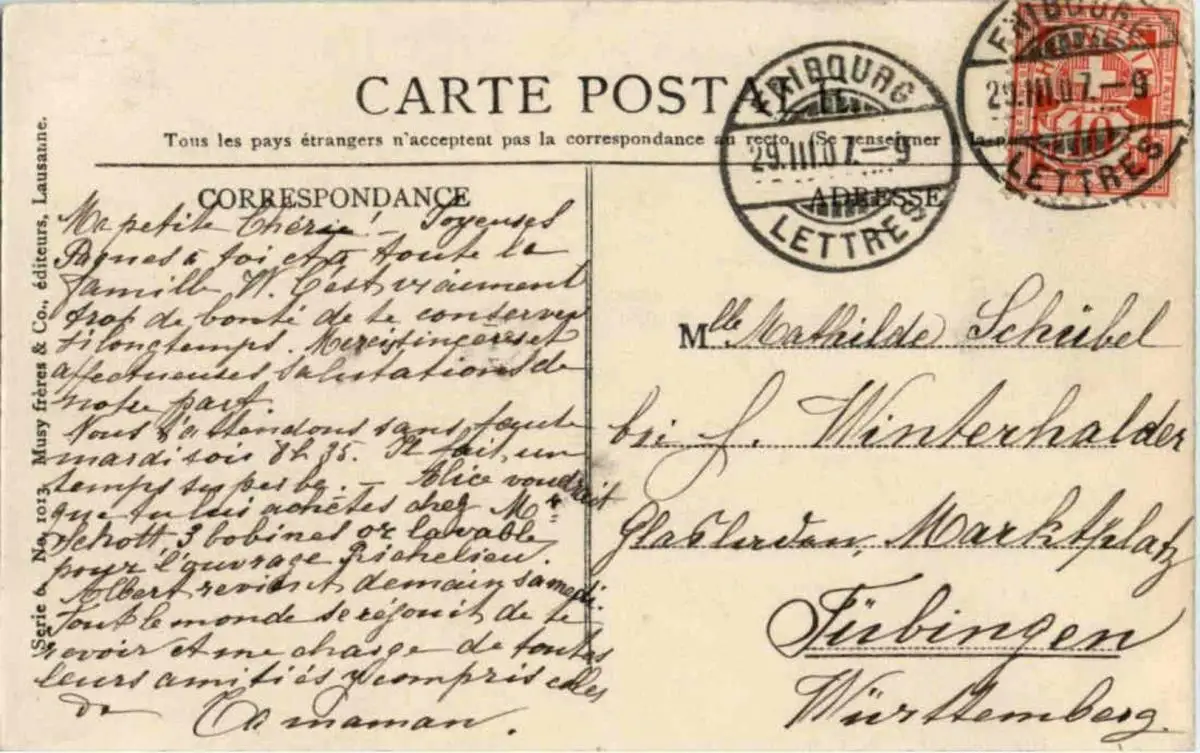 CARTE POSTALE
Tous les pays étrangers n'acceptent pas la correspondance au recto. (Se renseigner à la
CORRESPONDANCE
Ma petite Chérie! – Joyeuses
Pâques à toi et à toute la
famille W. C'est vraiment
trop de bonté de te conserver
si longtemps. Merci sincères et
affectueuses salutations de
notre part.
Nous t'attendons sans faute
mardi soir 8 h 35. Il fait un
temps superbe. – Alice voudrait
que tu lui achètes chez Mr
Schott 3 bobines or lavable
pour l'ouvrage Richelieu.
Albert revient demain samedi.
Tout le monde se réjouit de te
revoir et me charge de toutes
leurs amitiés y compris celles
de Ta maman.
ADRESSE
Mlle Mathilde Schübel
bei J. Winterhalder
Glasladen, Marktplatz
Tübingen
Württemberg.
FRIBOURG
29.III.07.–9
LETTRES
FRIBOURG
29.III.07.–9
LETTRES
10
Serie 6. No. 1013 Musy frères & Co., éditeurs, Lausanne.